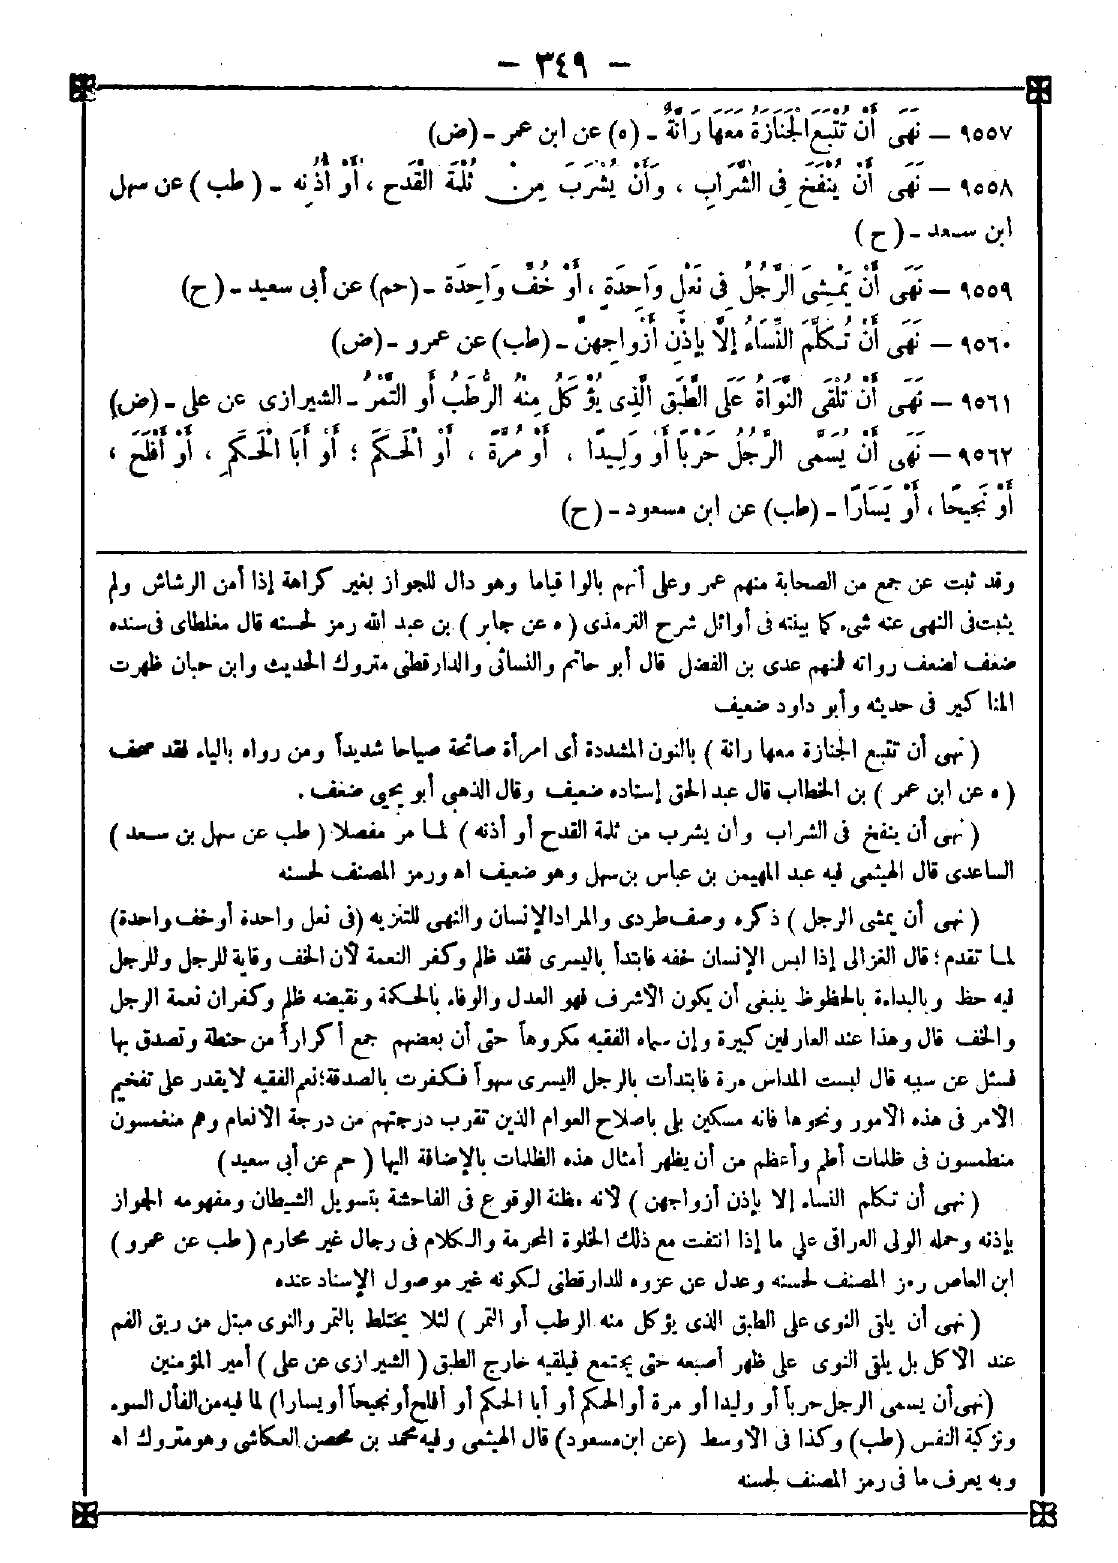 – ٣٤٩ –
٩٥٥٧ – نَهَى أَنْ تُتْبَعَ الْجَنَازَةُ مَعَهَا رَانَّةٌ - (ه) عن ابن عمر - (ض)
٩٥٥٨ – نَهَى أَنْ يُنْفَخَ فِى الشَّرَابِ ، وَأَنْ يُشْرَبَ مِنْ ثُلْمَةِ الْقَدَحِ ، أَوْ أُذُنِهِ - (طب) عن سهل
ابن سعد - (ح)
٩٥٥٩ – نَهَى أَنْ يَمْشِىَ الرَّجُلُ فِى نَعْلٍ وَاحِدَةٍ ، أَوْ خُفٍّ وَاحِدَةٍ - (حم) عن أبى سعيد - (ح)
٩٥٦٠ – نَهَى أَنْ تُكَلَّمَ النِّسَاءُ إِلاَّ بِإِذْنِ أَزْوَاجِهِنَّ - (طب) عن عمرو - (ض)
٩٥٦١ – نَهَى أَنْ تُلْقَى النَّوَاةُ عَلَى الطَّبَقِ الَّذِى يُؤْكَلُ مِنْهُ الرُّطَبُ أَوِ التَّمْرُ - الشيرازى عن على - (ض)
٩٥٦٢ – نَهَى أَنْ يُسَمَّى الرَّجُلُ حَرْبًا أَوْ وَلِيدًا ، أَوْ مُرَّةَ ، أَوْ الْحَكَمَ ؛ أَوْ أَبَا الْحَكَمِ ، أَوْ أَفْلَحَ ،
أَوْ نَجِيحًا ، أَوْ يَسَارًا - (طب) عن ابن مسعود - (ح)
وقد ثبت عن جمع من الصحابة منهم عمر وعلى أنهم بالوا قياما وهو دال للجواز بغير كراهة إذا أمن الرشاش ولم
يثبت فى النهى عنه شىء كما بينته فى أوائل شرح الترمذى (ه عن جابر) بن عبد الله رمز لحسنه قال مغلطاى فى سنده
ضعف لضعف رواته فمنهم عدى بن الفضل قال أبو حاتم والنسائى والدارقطنى متروك الحديث وابن حبان ظهرت
المناكير فى حديثه وأبو داود ضعيف
(نهى أن تتبع الجنازة معها رانة) بالنون المشددة أى امرأة صائحة صياحا شديداً ومن رواه بالياء فقد صحف
(ه عن ابن عمر) بن الخطاب قال عبد الحق إسناده ضعيف وقال الذهبى أبو يحيى ضعف .
(نهى أن ينفخ فى الشراب وأن يشرب من ثلمة القدح أو أذنه) لما مر مفصلا (طب عن سهل بن سعد)
الساعدى قال الهيثمى فيه عبد المهيمن بن عباس بن سهل وهو ضعيف اه ورمز المصنف لحسنه
(نهى أن يمشى الرجل) ذكره وصف طردى والمراد الإنسان والنهى للتنزيه (فى نعل واحدة أو خف واحدة)
لما تقدم ؛ قال الغزالى إذا لبس الإنسان خفه فابتدأ باليسرى فقد ظلم وكفر النعمة لأن الخف وقاية للرجل وللرجل
فيه حظ وبالبداءة بالحظوظ ينبغى أن يكون الأشرف فهو العدل والوفاء بالحكمة ونقيضه ظلم وكفران نعمة الرجل
والخف قال وهذا عند العارفين كبيرة وإن سماه الفقيه مكروهاً حتى أن بعضهم جمع أكراراً من حنطة وتصدق بها
فسئل عن سببه قال لبست المداس مرة فابتدأت بالرجل اليسرى سهواً فكفرت بالصدقة؛ نعم الفقيه لا يقدر على تفخيم
الأمر فى هذه الأمور ونحوها فانه مسكين بلى باصلاح العوام الذين تقرب درجتهم من درجة الأنعام وهم منغمسون
منطمسون فى ظلمات أطم وأعظم من أن يظهر أمثال هذه الظلمات بالإضافة اليها (حم عن أبى سعيد)
(نهى أن تكلم النساء إلا بإذن أزواجهن) لأنه مظنة الوقوع فى الفاحشة بتسويل الشيطان ومفهومه الجواز
بإذنه وحمله الولى العراقى على ما إذا انتفت مع ذلك الخلوة المحرمة والكلام فى رجال غير محارم (طب عن عمرو)
ابن العاص رمز المصنف لحسنه وعدل عن عزوه للدارقطنى لكونه غير موصول الإسناد عنده
(نهى أن يلقى النوى على الطبق الذى يؤكل منه الرطب أو التمر) لئلا يختلط بالتمر والنوى مبتل من ريق الفم
عند الأكل بل يلقى النوى على ظهر أصبعه حتى يجتمع فيلقيه خارج الطبق (الشيرازى عن على) أمير المؤمنين
(نهى أن يسمى الرجل حرباً أو وليدا أو مرة أو الحكم أو أبا الحكم أو أفلح أو نجيحاً أو يسارا) لما فيه من الفأل السوء
وتزكية النفس (طب) وكذا فى الأوسط (عن ابن مسعود) قال الهيثمى وفيه محمد بن محصن العكاشى وهو متروك اه
وبه يعرف ما فى رمز المصنف لحسنه